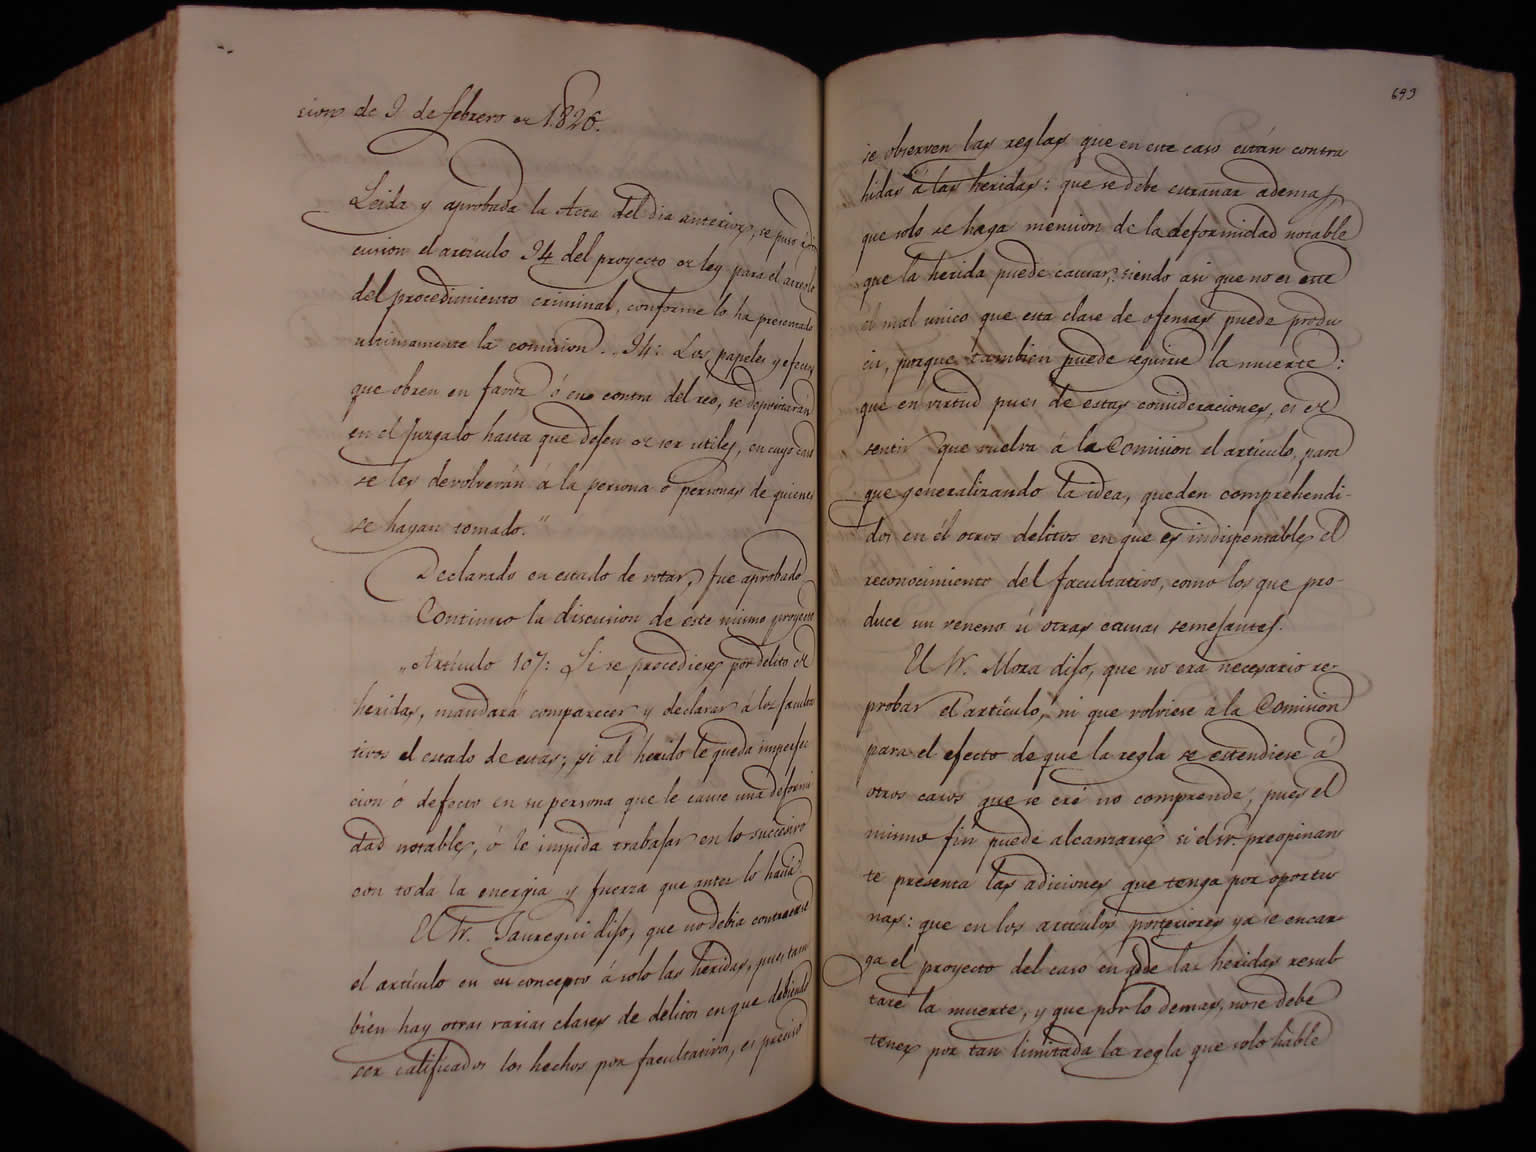 sion de 9 de febrero de 1826.
Leida y aprobada la Acta del dia anterior, se puso á dis
cusion el articulo 94 del proyecto de ley para el arreglo
del procedimiento criminal, conforme lo ha presentado
ultimamente la comision. „94: Los papeles y efectos
que obren en favor ó en contra del reo, se depositarán
en el Juzgado hasta que dejen de ser utiles, en cuyo caso
se les devolverán á la persona ó personas de quienes
se hayan tomado."
Declarado en estado de votar, fue aprobado
Continuo la discusion de este mismo proyecto
„Artículo 107: Si se procediese por delito de
heridas, mandará comparecer y declarar á los faculta
tivos el estado de estas; si al herido le queda imperfec
cion ó defecto en su persona que le cause una deformi
dad notable, ó le impida trabajar en lo succesivo
con toda la energia y fuerza que antes lo hacia
El Sr. Jauregui dijo, que no debia contraerse
el artículo en su concepto á solo las heridas, pues tam
bien hay otras varias clases de delitos en que debiendo
ser calificados los hechos por facultativos, es preciso
693
se observen las reglas que en este caso están contra
hidas á las heridas: que se debe estrañar ademas
que solo se haga mencion de la deformidad notable
que la herida puede causar, siendo asi que no es este
el mal unico que esta clase de ofensas puede produ
cir, porque tambien puede seguirse la muerte:
que en virtud pues de estas consideraciones, es de
sentir que vuelva á la Comision el artículo, para
que generalizando la idea, queden comprehendi-
dos en él otros delitos en que es indispensable el
reconocimiento del facultativo, como los que pro-
duce un veneno ú otras causas semejantes.
El Sr. Mora dijo, que no era necesario re-
probar el artículo, ni que volviese á la Comision
para el efecto de que la regla se estendiese á
otros casos que se cré no comprende, pues el
mismo fin puede alcanzarse si el Sr. preopinan
te presenta las adiciones que tenga por oportu
nas: que en los artículos posteriores ya se encar
ga el proyecto del caso en qe. de las heridas resul
tare la muerte, y que por lo demas, no se debe
tener por tan limitada la regla que solo hable